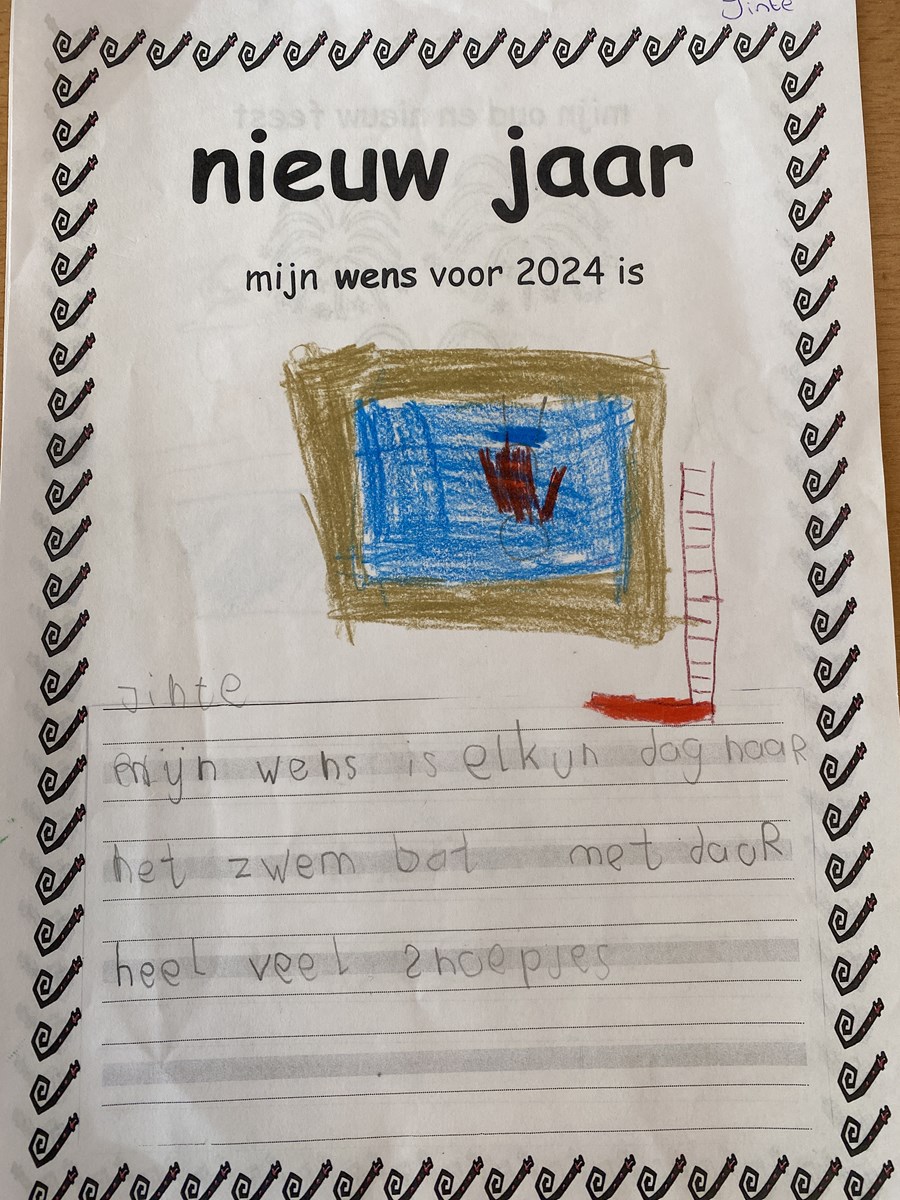 Jinte
nieuw jaar
mijn wens voor 2024 is
Jinte
mijn wens is elkun dag naaR
het zwem bat met daaR
heel veel snoepjes